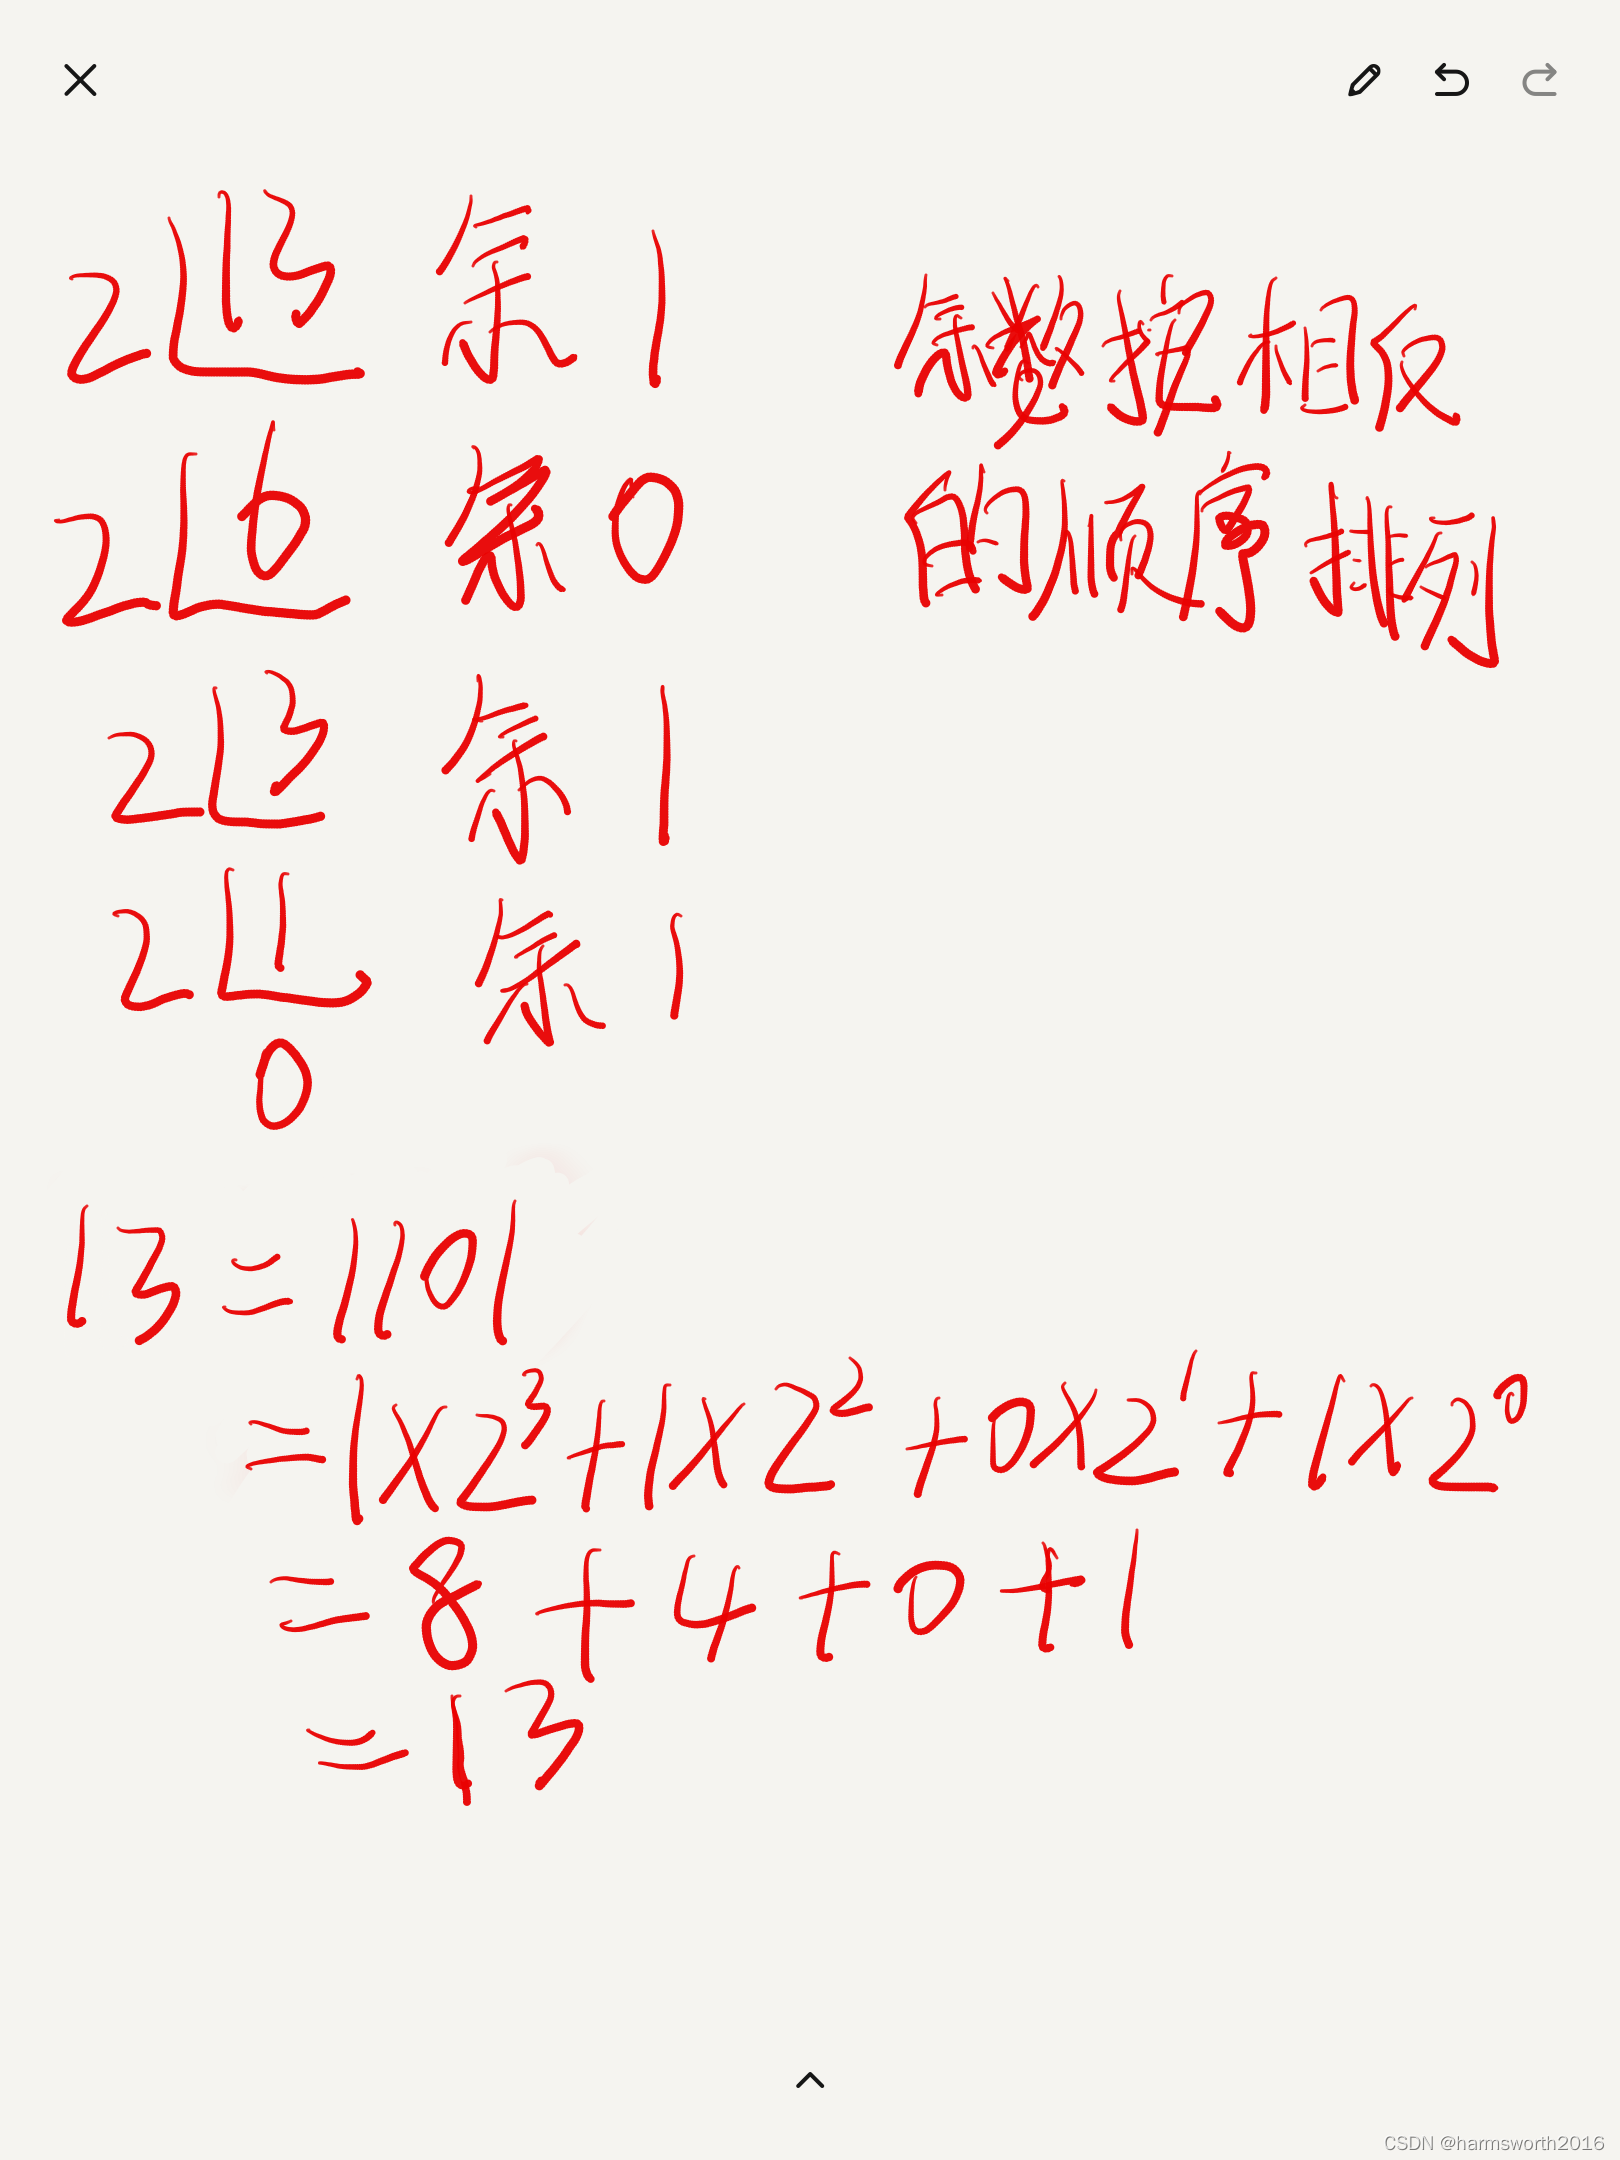 2 13 余 1
余数按相反
2 6 余 0
的顺序排列
2 3 余 1
2 1 余 1
0
13=1101
=1×2³+1×2²+0×2¹+1×2⁰
=8+4+0+1
=13
CSDN @harmsworth2016